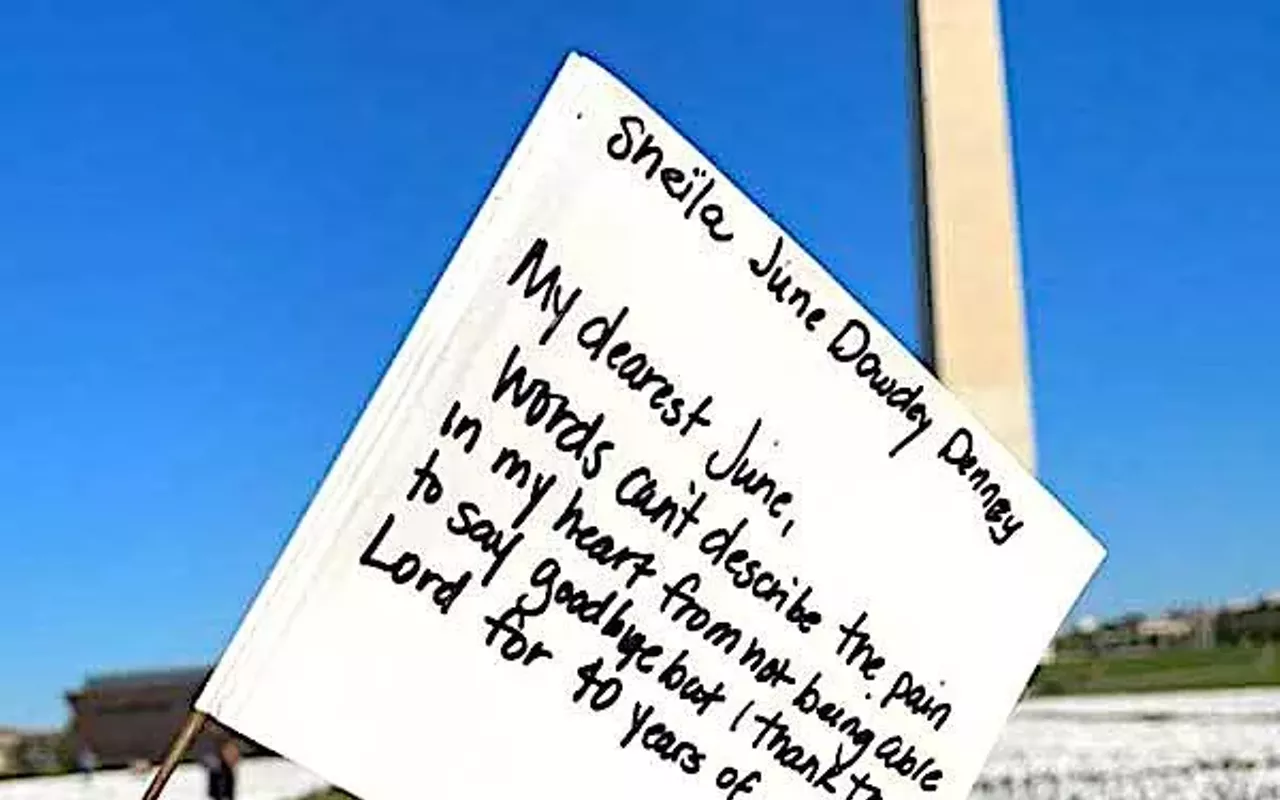 Sheila June Dowdey Denney
My dearest June,
Words can't describe the pain
in my heart from not being able
to say goodbye but I thank
Lord for 40 years of